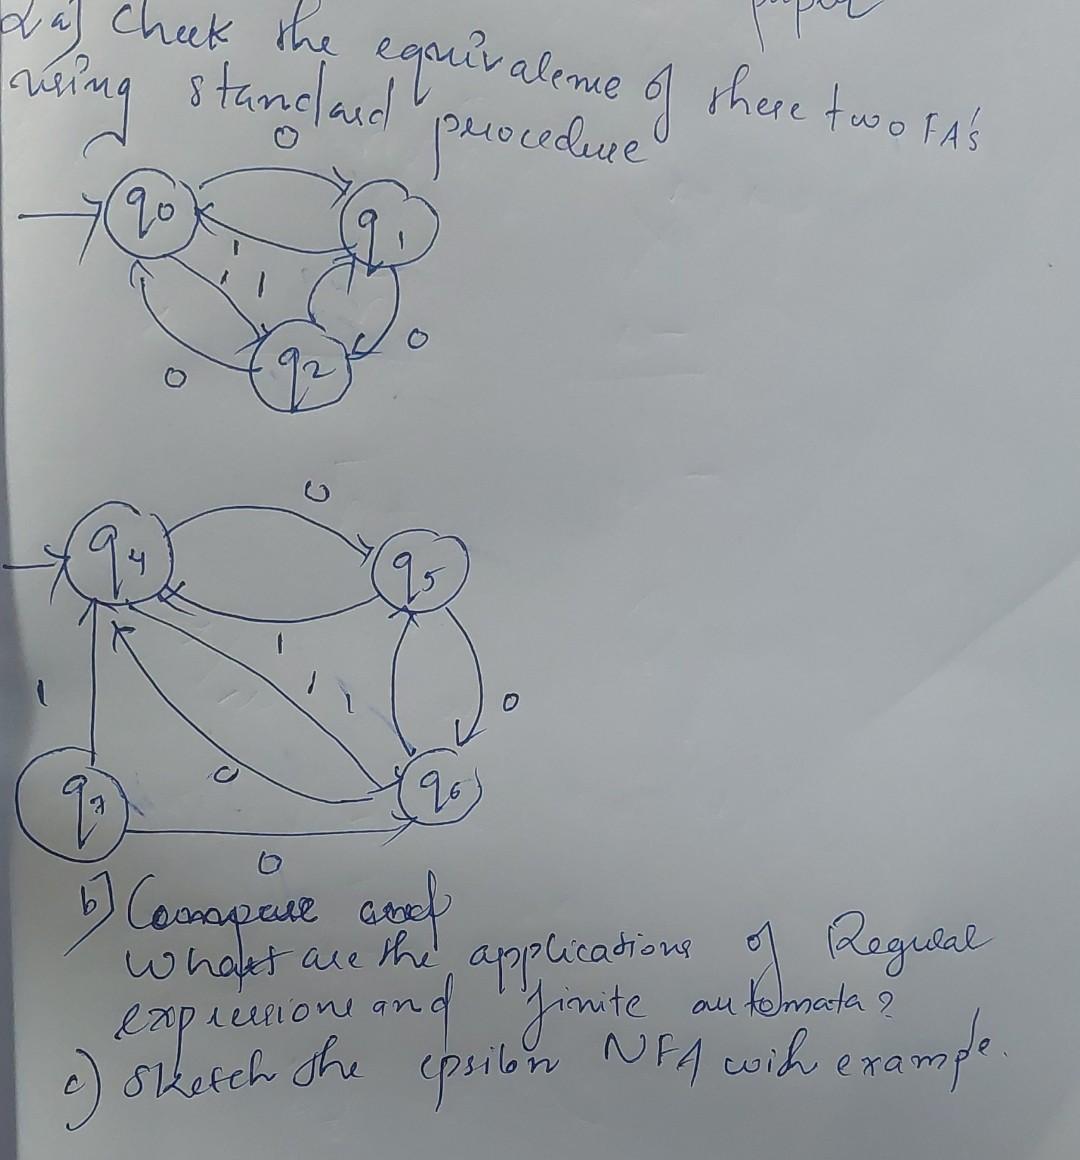 paper
2a) Cheek the equivalence of these two FA's
using standard procedure
0
q0
q1
1
1 1
0
q2
0
0
q4
q5
1
1 1
1
0
0
q7
q6
0
b) Compare and
What are the applications of Regular
expressions and finite automata?
c) Sketch the epsilon NFA with example.